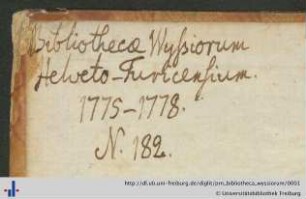 Bibliothecæ Wyssiorum
Helveto-Turicensium.
1775-1778.
N. 182.
http://dl.ub.uni-freiburg.de/diglit/orn_bibliotheca_wessiorum/0001
©Universitätsbibliothek Freiburg